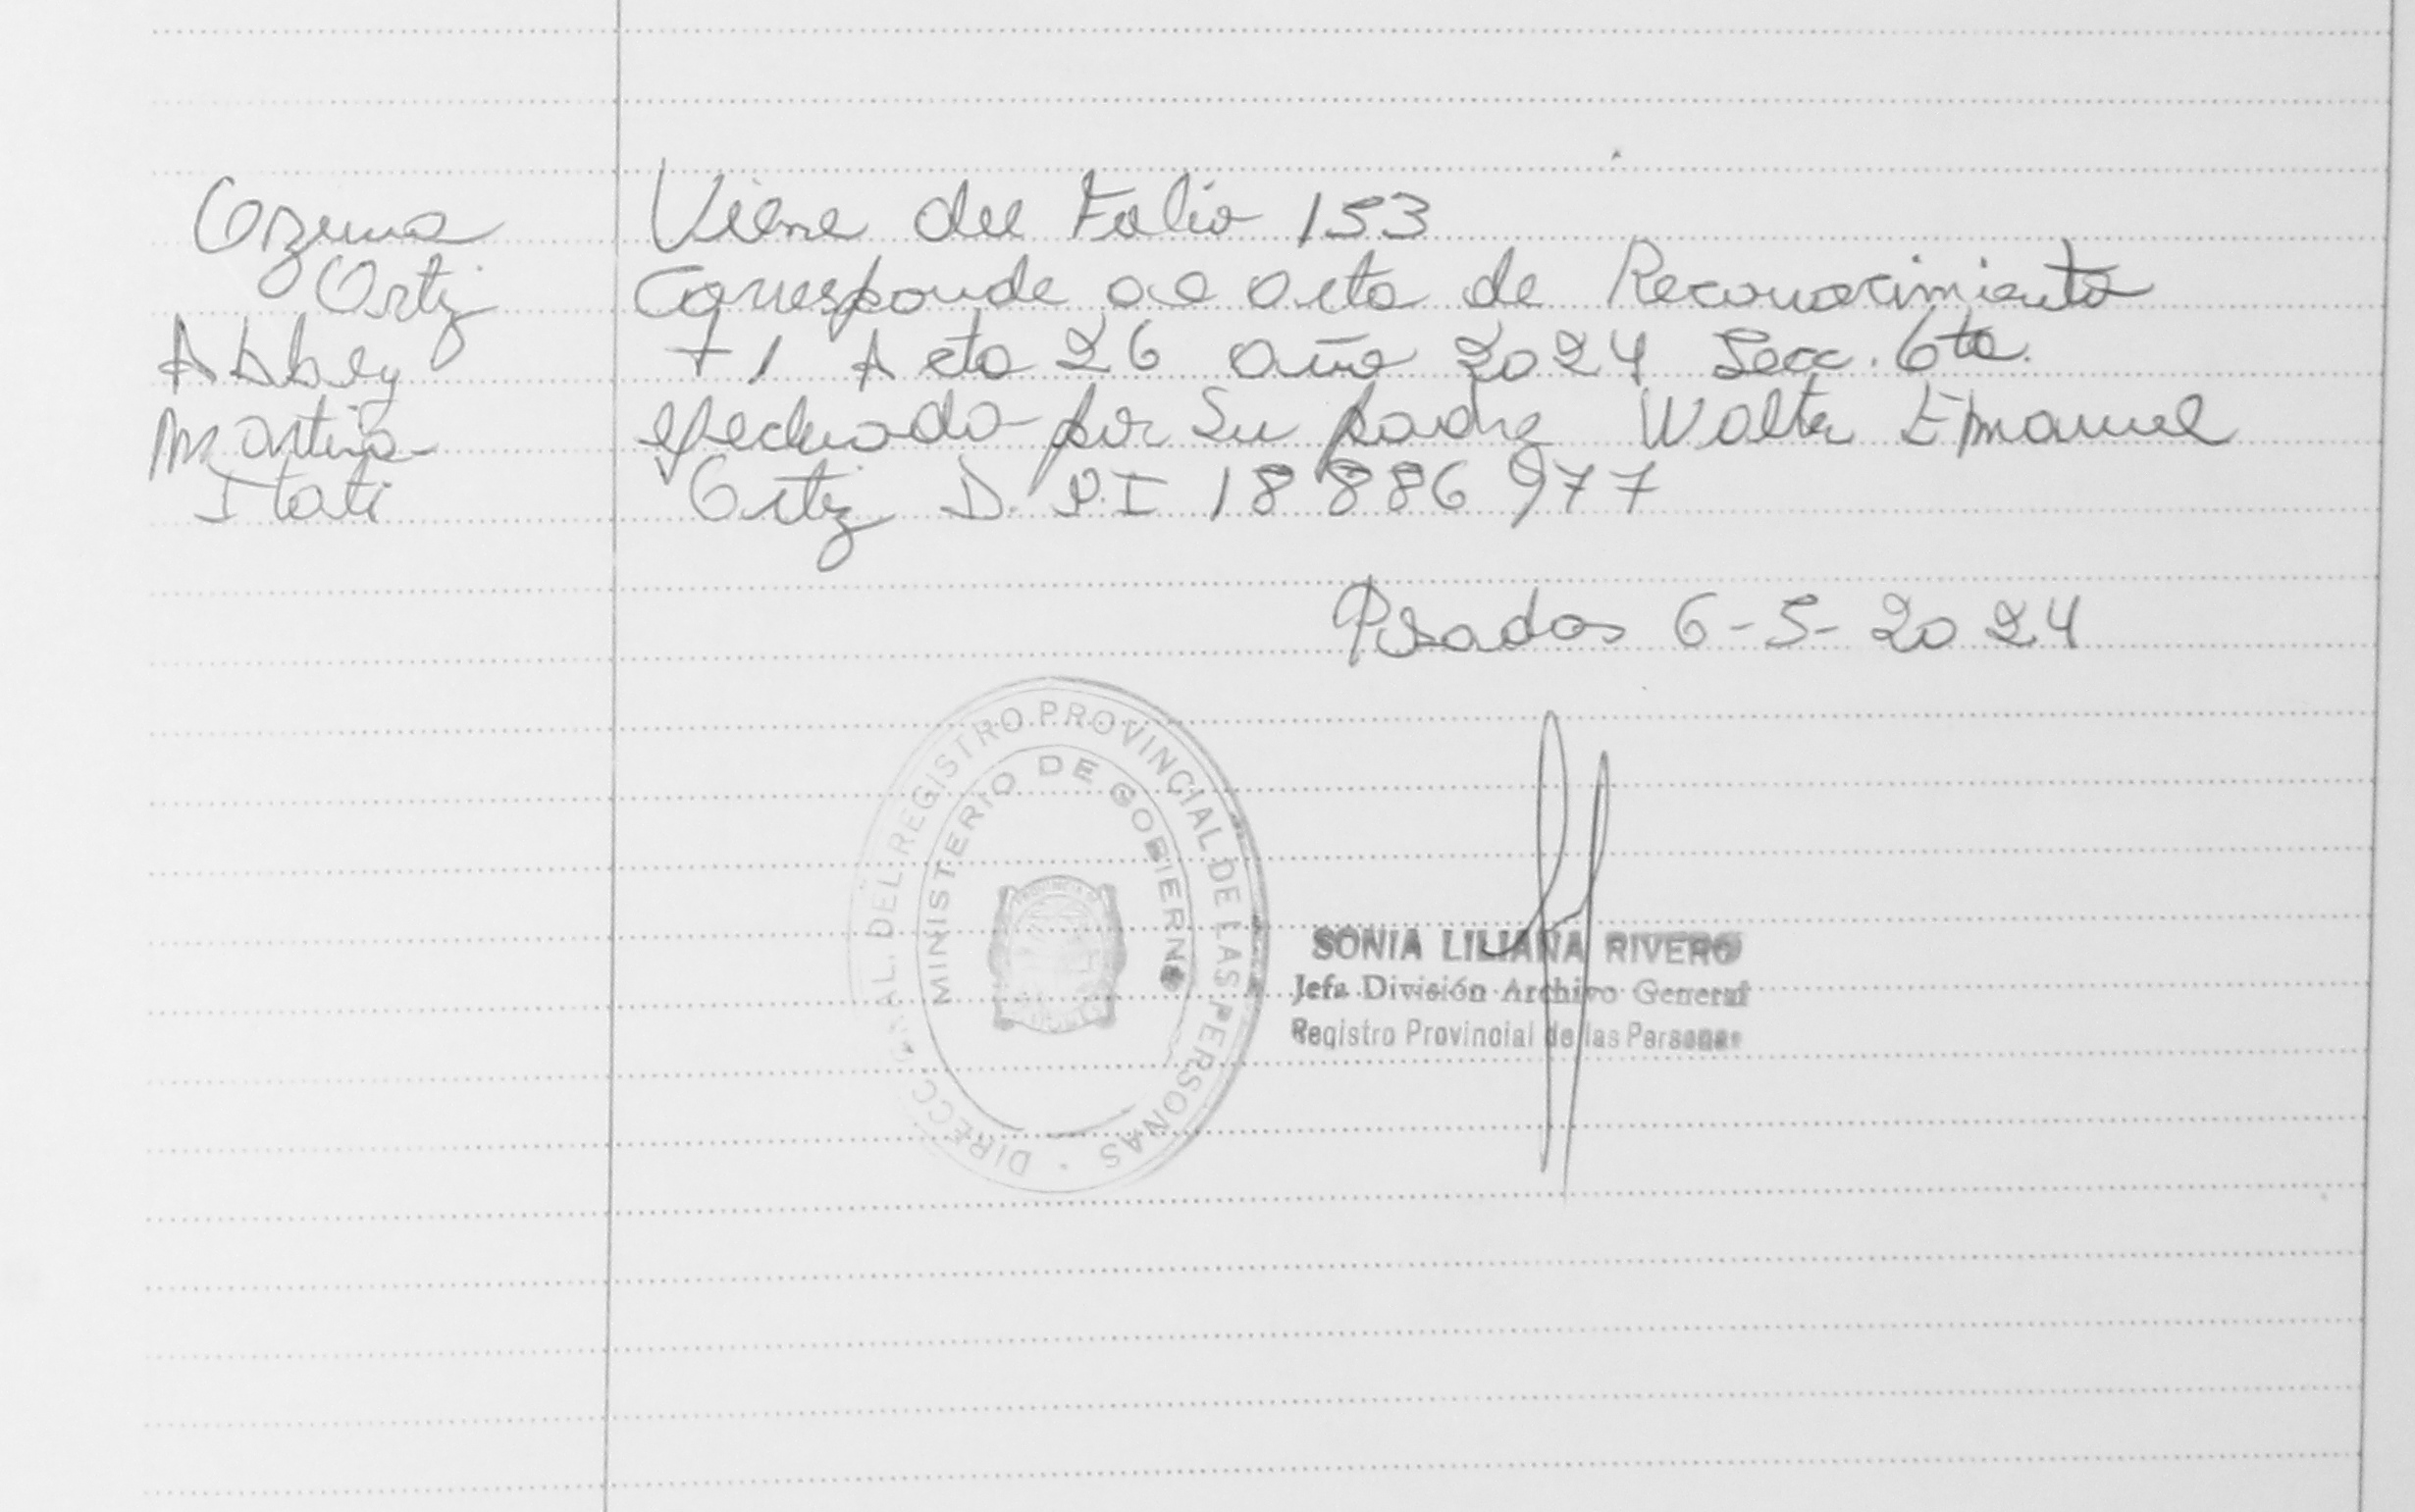 Ozuna
Ortiz
Abbey
Martina
Itati
Viene del Folio 153
Corresponde al acta de Reconocimiento
T 1 Acta 26 año 2024 Secc. 6ta.
efectuado por su padre Walter Emanuel
Ortiz D.N.I 18886977
Posadas 6-5-2024
DIRECC GRAL. DEL REGISTRO PROVINCIAL DE LAS PERSONAS
MINISTERIO DE GOBIERNO
SONIA LILIANA RIVERO
Jefa División Archivo General
Registro Provincial de las Personas